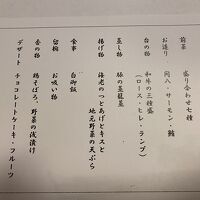 前菜　盛り合わせ七種
お造り　間八・サーモン・鮪
台の物　和牛の三種盛
（ロース・ヒレ・ランプ）
蒸し物　豚の蒸籠蒸
揚げ物　海老のつとあげとキスと
地元野菜の天ぷら
食事　白御飯
留椀　お吸い物
香の物　鶏そぼろ、野菜の浅漬け
デザート　チョコレートケーキ・フルーツ